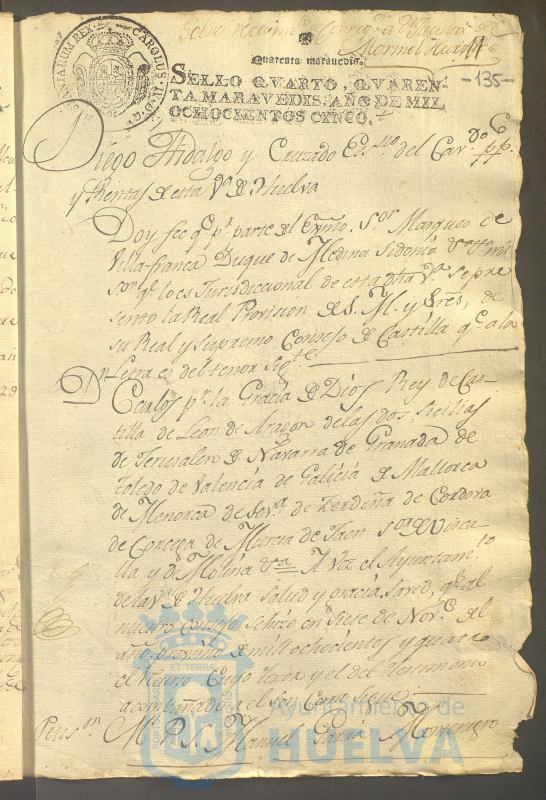 Sobre Recivim.to Corregr. a Dn
Mormel
CAROLUS IV D. G. HISPANIARUM REX
Quarenta maravedis.
-135-
SELLO QVARTO, QVAREN-
TA MARAVEDIS, AÑO DE MIL
OCHOCIENTOS CINCO.
Diego Hidalgo y Cruzado Esno del Cavdo
y Rentas de esta Va de Huelva
Doy fee qe pr parte del Exmo. Sor Marques de
Villa-franca Duque de Medina Sidonia
Sor qe lo es Jurisdiccional de esta dha Va se pre
sentó la Real Provision de S. M. y Sres, de
su Real y Supremo Consejo de Castilla qe a la
Letra es del tenor sigte
Dn Carlos pr la Gracia de Dios Rey de Cas-
tilla de Leon de Aragon de las dos Sicilias
de Jerusalen de Navarra de Granada de
Toledo de Valencia de Galicia de Mallorca
de Menorca de Seva de Zerdeña de Cordova
de Corcega de Murcia de Jaen Sor de Visca-
lla y de Molina &a A vos el Ayuntamto
de la Va de Huelva salud y gracia, saved, qe al
nuestro Consejo se hizo en siete de Nove del
año proximo de mil ochocientos y quatro
el recurso Cuyo tenor y el del testimonio
acompañado a el son como sigue
Petison M. P. S. Manuel Garcia Montenegro
ET TERRÆ
Ayuntamiento de
HUELVA